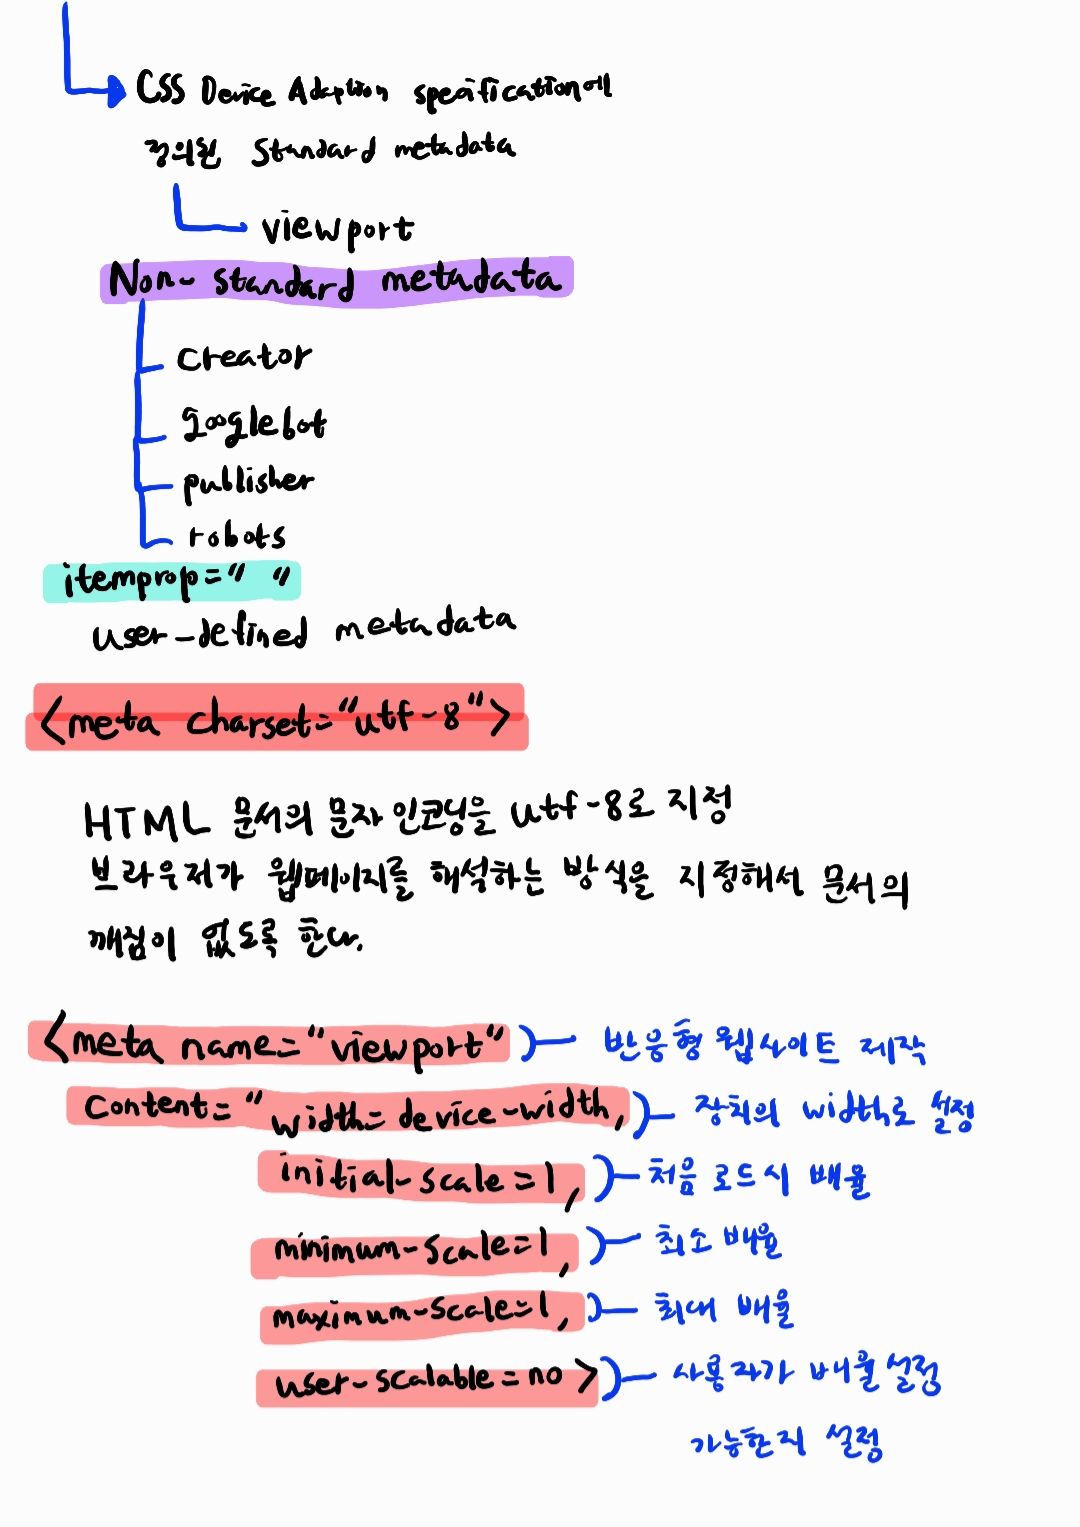 CSS Device Adaption specification에
정의된 Standard metadata
viewport
Non-standard metadata
creator
googlebot
publisher
robots
itemprop=" "
user-defined metadata
<meta charset="utf-8">
HTML 문서의 문자 인코딩을 utf-8로 지정
브라우저가 웹페이지를 해석하는 방식을 지정해서 문서의
깨짐이 없도록 한다.
<meta name="viewport" 반응형 웹사이트 제작
content="width=device-width, 장치의 width로 설정
initial-scale=1, 처음 로드시 배율
minimum-scale=1, 최소 배율
maximum-scale=1, 최대 배율
user-scalable=no> 사용자가 배율 설정
가능한지 설정